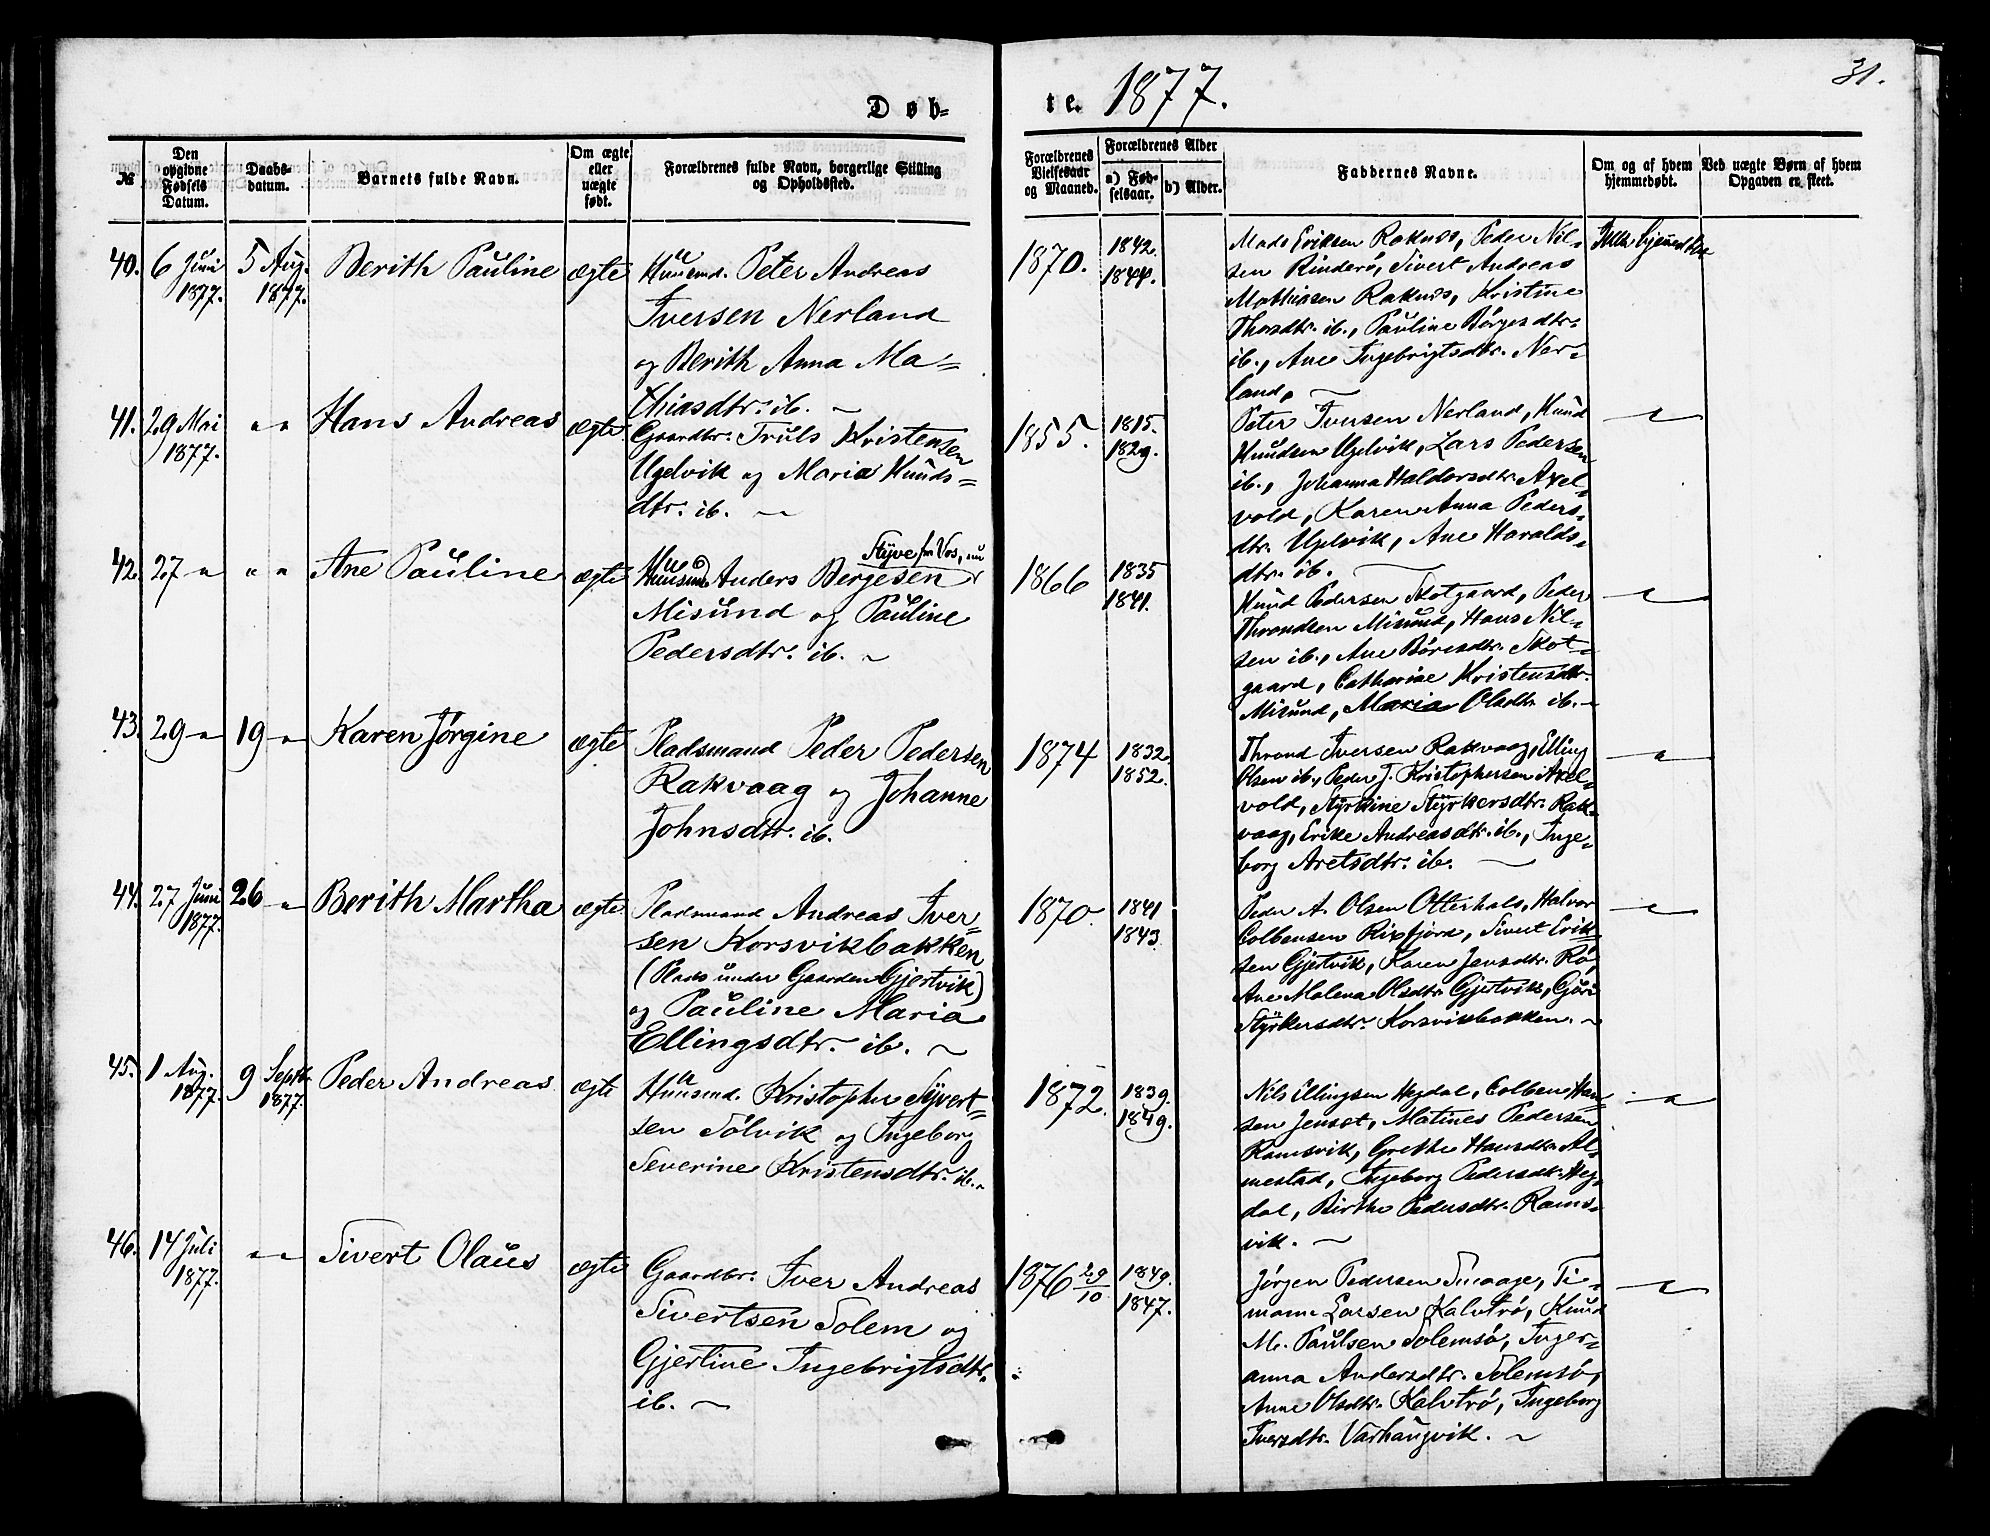 Døb-
te. 1877.
31.
№
Den opgivne Fødsels Datum.
Daabsdatum.
Barnets fulde Navn.
Om ægte eller uægte født.
Forældrenes fulde Navn, borgerlige Stilling og Opholdssted.
Forældrenes Vielsesaar og Maaned.
Forældrenes Alder
a) Fødselsaar.
b) Alder.
Faddernes Navne.
Om og af hvem hjemmedøbt.
Ved uægte Børn af hvem Opgaven er skeet.
40. 6 Juni 1877. 5 Aug. 1877. Berith Pauline ægte
Huusmd. Peter Andreas
Iversen Nerland
og Berith Anna Ma-
thiasdtr. ib.
1870. 1842. 1844.
Mads Eriksen Raknes, Peder Nil-
sen Rinderø, Sivert Andreas
Mathiasen Raknes, Kristine
Thorsdtr. ib., Pauline Børgesdtr.
ib., Ane Ingebrigtsdtr. Ner-
land,
Ikke hjemmedøbt
41. 29 Mai 1877. " " Hans Andreas ægte
Gaardbr. Truls Kristensen
Ugelvik og Maria Knuds-
dtr. ib.
1855. 1815. 1829.
Peter Iversen Nerland, Knud
Knudsen Ugelvik, Lars Pedersen
ib., Johanna Haldorsdtr. Axel-
vold, Karen Anna Peders-
dtr. Ugelvik, Ane Haralds-
dtr. ib.
"
42. 27 " " " Ane Pauline ægte
Styve fra Vos, nu
Huusmd Anders Bergesen
Misund og Pauline
Pedersdtr. ib.
1866 1835 1841.
Knud Pedersen Skotgaard, Peder
Throndsen Misund, Hans Nil-
sen ib., Ane Børesdtr. Skot-
gaard, Catharine Kristensdtr.
Misund, Maria Olsdtr. ib.
"
43. 29 " 19 " Karen Jørgine ægte
Pladsmand Peder Pedersen
Rakvaag og Johanne
Johnsdtr. ib.
1874 1832. 1852.
Thrond Iversen Rakvaag, Elling
Olsen ib., Peder J. Kristophersen Axel-
vold, Styrkine Styrkersdtr. Rak-
vaag, Erike Andreasdtr. ib., Inge-
borg Aretsdtr. ib.
"
44. 27 Juni 1877. 26 " Berith Martha ægte.
Pladsmand Andreas Iver-
sen Korsvikbakken
(Plads under Gaarden Gjertvik)
og Pauline Maria
Ellingsdtr. ib.
1870. 1841 1843.
Peder A. Olsen Otterhals, Halvor
Colbensen Rixfjord, Sivert Erik-
sen Gjertvik, Karen Jensdtr. Rø,
Ane Malena Olsdtr. Gjertvik, Gjøri
Styrkersdtr. Korsvikbakken.
"
45. 1 Aug. 1877. 9 Septbr. 1877. Peder Andreas ægte
Huusmd. Kristopher Syvert-
sen Sølvik og Ingeborg
Severine Kristensdtr. ib.
1872. 1839. 1849.
Nils Ellingsen Hegdal, Colben Han-
sen Jenset, Matines Pedersen
Ramsvik, Grethe Hansdtr. Al-
mestad, Ingeborg Pedersdtr. Heg-
dal, Birthe Pedersdtr. Rams-
vik.
"
46. 14 Juli 1877. " " Sivert Olaus ægte
Gaardbr. Iver Andreas
Sivertsen Solem og
Gjertine Ingebrigtsdtr.
ib.
1876 29/10 1849. 1847.
Jørgen Pedersen Smaage, Ti-
mann Larsen Kalvtrø, Knud
M. Paulsen Solemsø, Inger-
anna Andersdtr. Solemsø,
Anne Olsdtr. Kalvtrø, Ingeborg
Iversdtr. Varhaugvik.
"